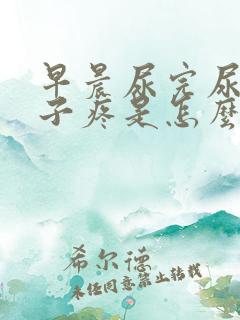 早晨尿完尿
子疼是怎麽
希尔德
未经同意禁止转载